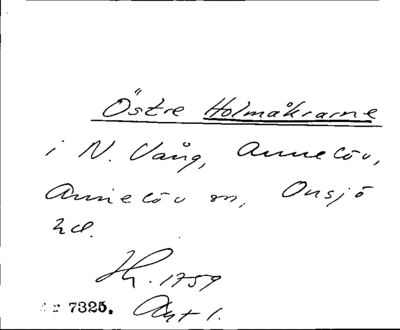 Östre Holmåkrarne
i N. Vång, Annelöv,
Annelöv sn, Onsjö
hd.
Hy. 1759
Nr 7325. Akt 1.